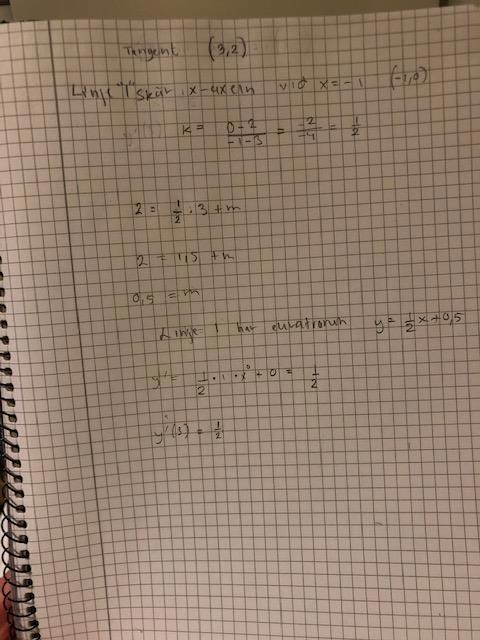 Tangent (3,2)
Linje "l" skär x-axeln vid x = -1 (-1,0)
k = \frac{0-2}{-1-3} = \frac{-2}{-4} = \frac{1}{2}
2 = \frac{1}{2} · 3 + m
2 = 1,5 + m
0,5 = m
Linje l har y = \frac{1}{2}x + 0,5
y' = \frac{1}{2} · 1 · x^0 + 0 = \frac{1}{2}
y'(3) = \frac{1}{2}